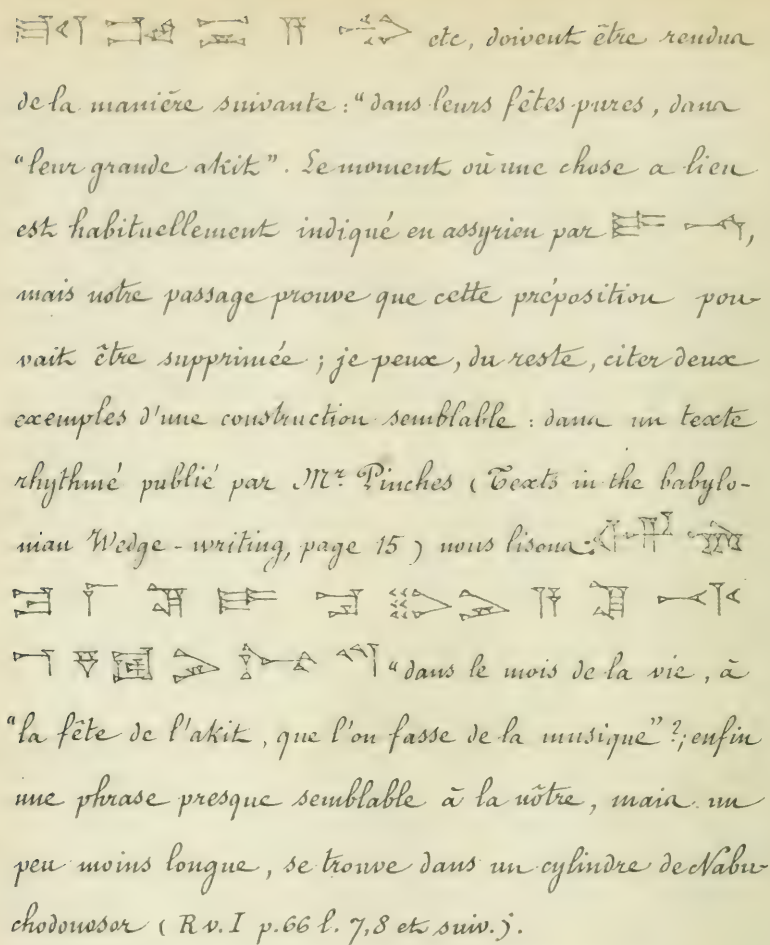 etc, doivent être rendus
de la manière suivante : "dans leurs fêtes pures, dans
"leur grande akit". Le moment où une chose a lieu
est habituellement indiqué en assyrien par 𒅖 𒌅,
mais notre passage prouve que cette préposition pou-
vait être supprimée ; je peux, du reste, citer deux
exemples d'une construction semblable : dans un texte
rhythmé publié par Mr. Pinches (Texts in the babylo-
nian Wedge-writing, page 15) nous lisons :
"dans le mois de la vie, à
"la fête de l'akit, que l'on fasse de la musique" ?; enfin
une phrase presque semblable à la nôtre, mais un
peu moins longue, se trouve dans un cylindre de Nabu-
chodonosor (R v. I p. 66 l. 7,8 et suiv.).